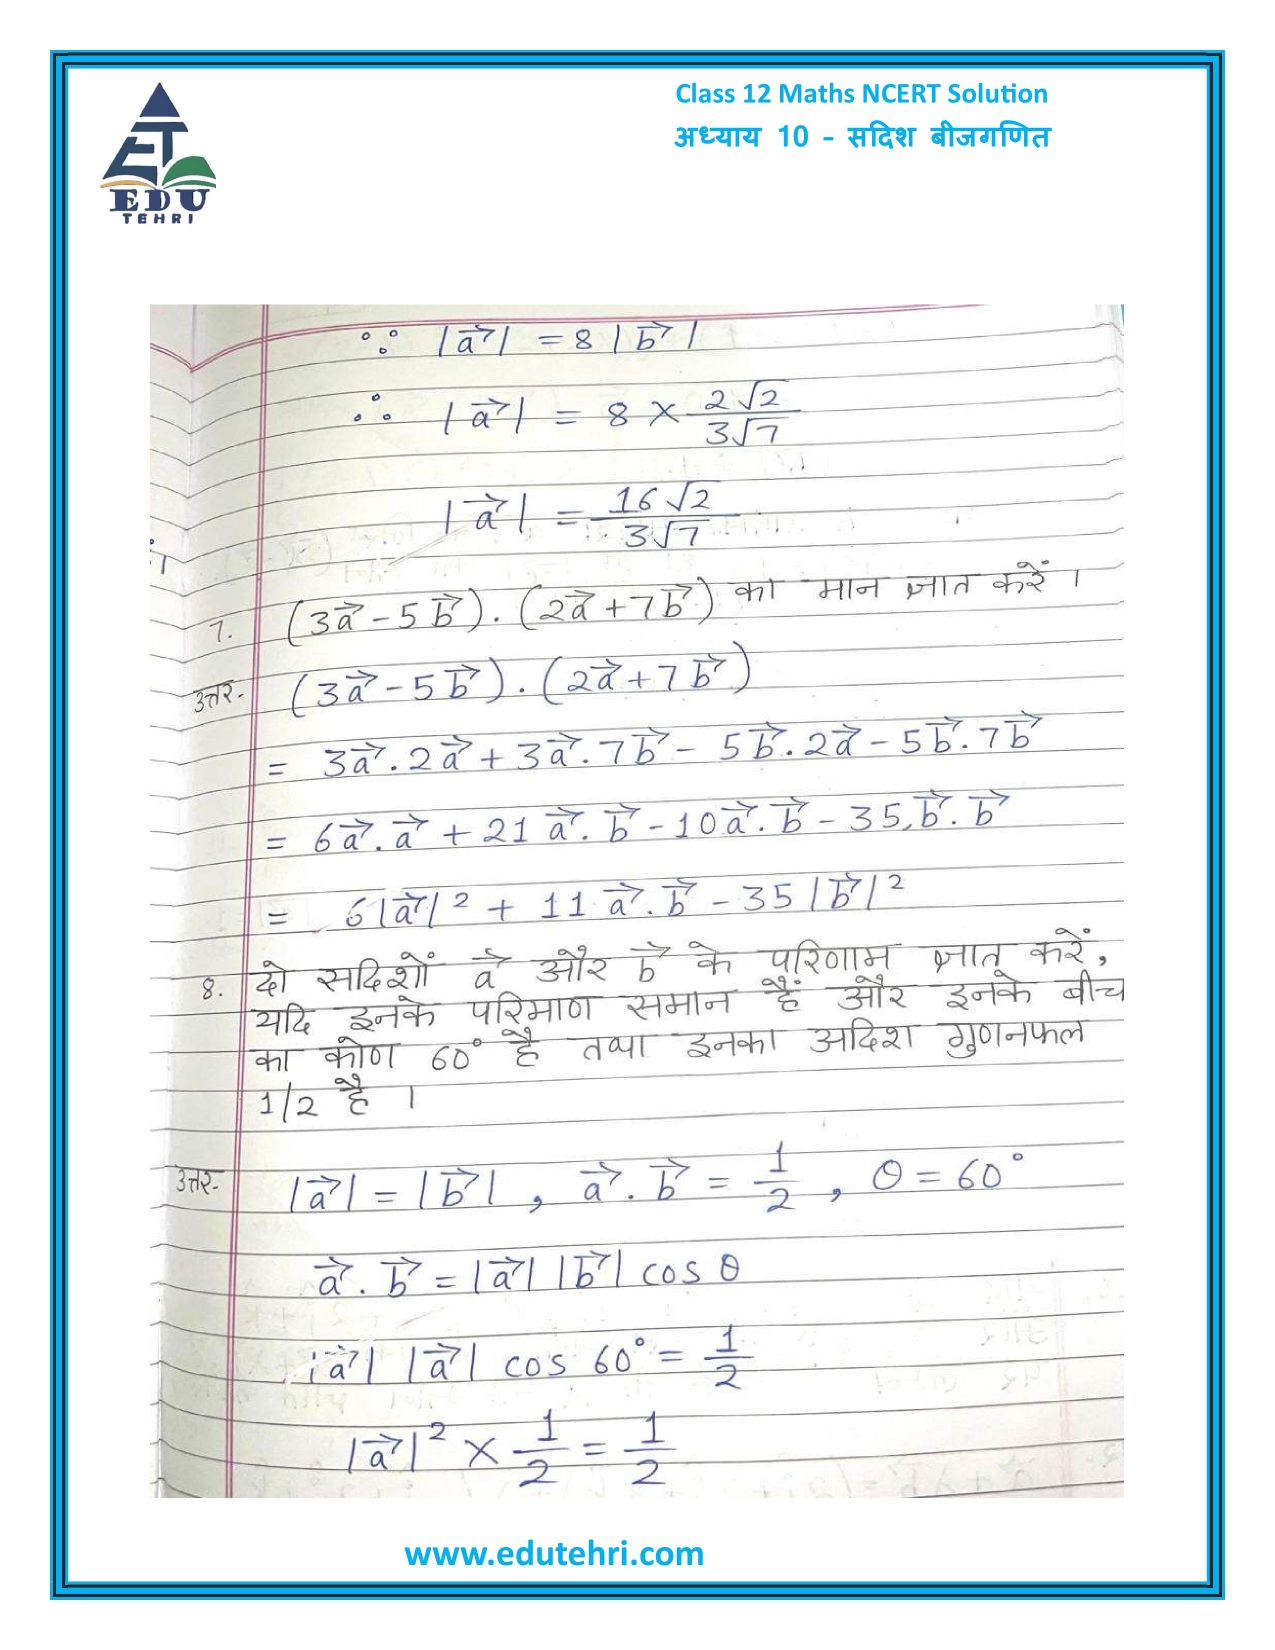 Class 12 Maths NCERT Solution
अध्याय 10 - सदिश बीजगणित
EDU
TEHRI
∵ |a⃗| = 8 |b⃗|
∴ |a⃗| = 8 × 2√2/3√7
|a⃗| = 16√2/3√7
7. (3a⃗ - 5b⃗) . (2a⃗ + 7b⃗) का मान ज्ञात करें ।
उत्तर- (3a⃗ - 5b⃗) . (2a⃗ + 7b⃗)
= 3a⃗ . 2a⃗ + 3a⃗ . 7b⃗ - 5b⃗ . 2a⃗ - 5b⃗ . 7b⃗
= 6a⃗ . a⃗ + 21 a⃗ . b⃗ - 10a⃗ . b⃗ - 35 b⃗ . b⃗
= 6|a⃗|² + 11 a⃗ . b⃗ - 35 |b⃗|²
8. दो सदिशों a⃗ और b⃗ के परिणाम ज्ञात करें,
यदि इनके परिमाण समान हैं और इनके बीच
का कोण 60° है तथा इनका अदिश गुणनफल
1/2 है ।
उत्तर- |a⃗| = |b⃗| , a⃗ . b⃗ = 1/2 , θ = 60°
a⃗ . b⃗ = |a⃗| |b⃗| cos θ
|a⃗| |a⃗| cos 60° = 1/2
|a⃗|² × 1/2 = 1/2
www.edutehri.com